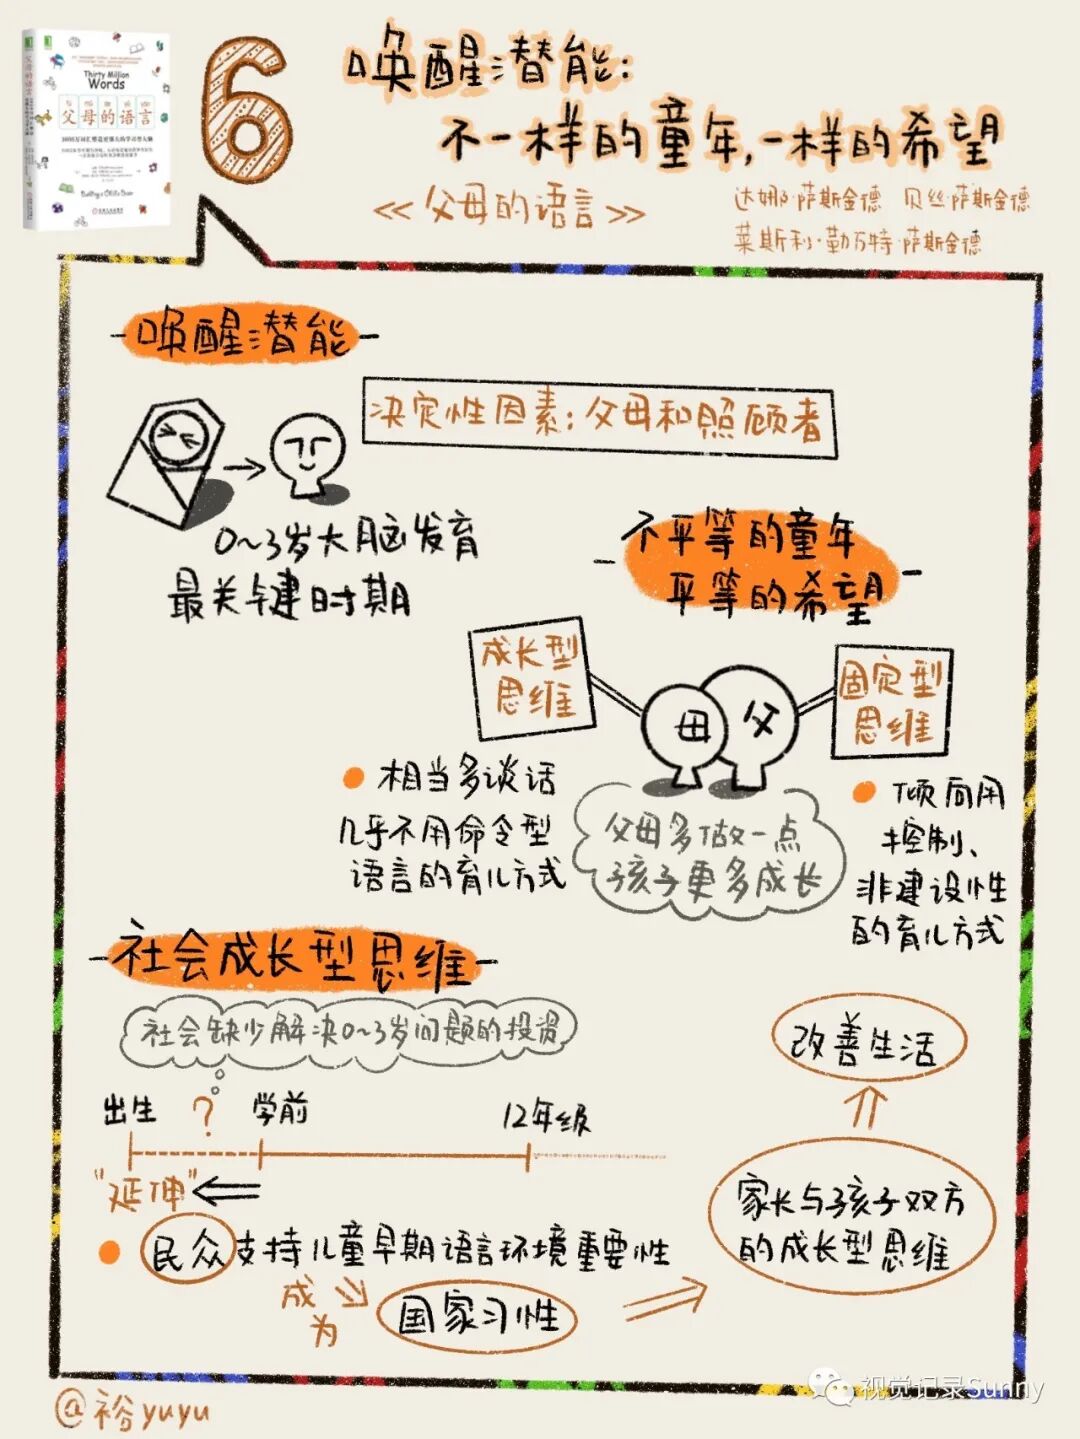 父母的语言
Thirty Million
Words
父母的语言
3000万词汇塑造更强大的学习型大脑
Building a Child's Brain
6
唤醒潜能:
不一样的童年,一样的希望
《父母的语言》
达娜·萨斯金德 贝丝·萨斯金德
莱斯利·勒万特·萨斯金德
唤醒潜能
决定性因素:父母和照顾者
0~3岁大脑发育
最关键时期
不平等的童年
平等的希望
成长型
思维
母
父
固定型
思维
相当多谈话
几乎不用命令型
语言的育儿方式
父母多做一点
孩子更多成长
倾向用
控制、
非建设性
的育儿方式
社会成长型思维
社会缺少解决0~3岁问题的投资
出生
?
学前
12年级
"延伸"
民众支持儿童早期语言环境重要性
成为
国家习性
家长与孩子双方
的成长型思维
改善生活
@裕yuyu
视觉记录Sunny